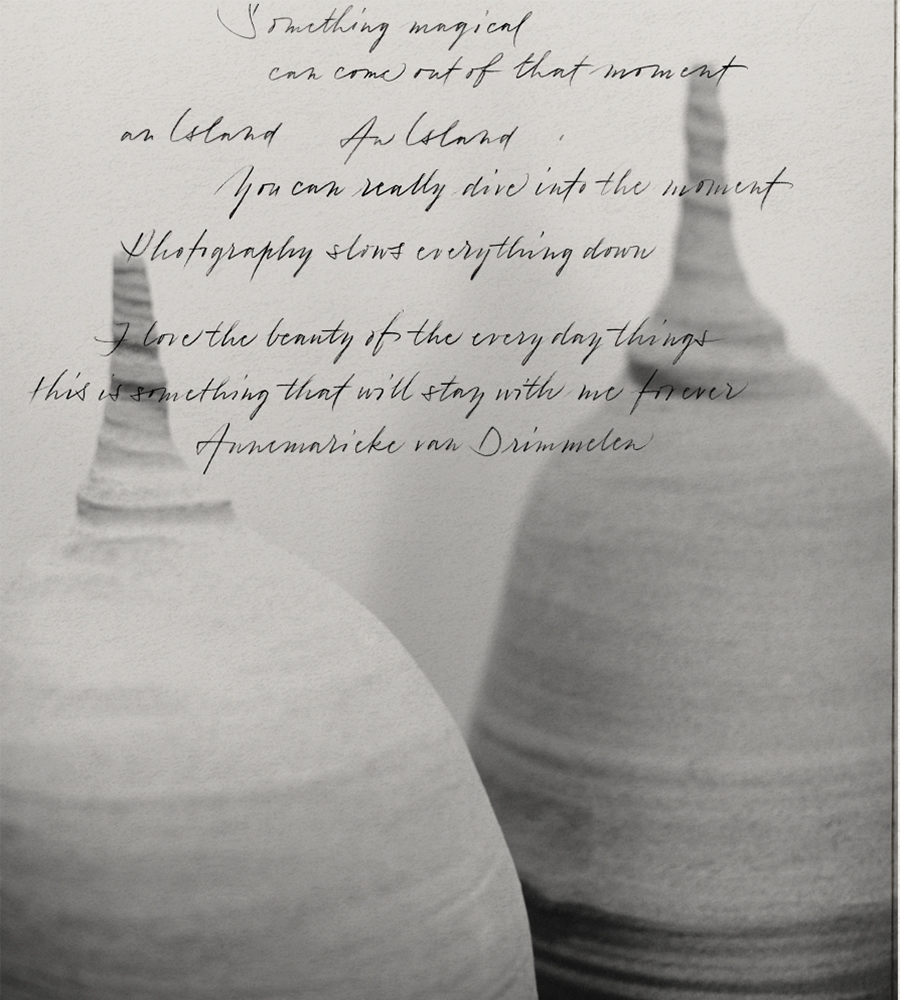 Something magical
can come out of that moment
an Island An Island
You can really dive into the moment
Photography slows everything down
I love the beauty of the everyday things
this is something that will stay with me forever
Annemarieke van Drimmelen